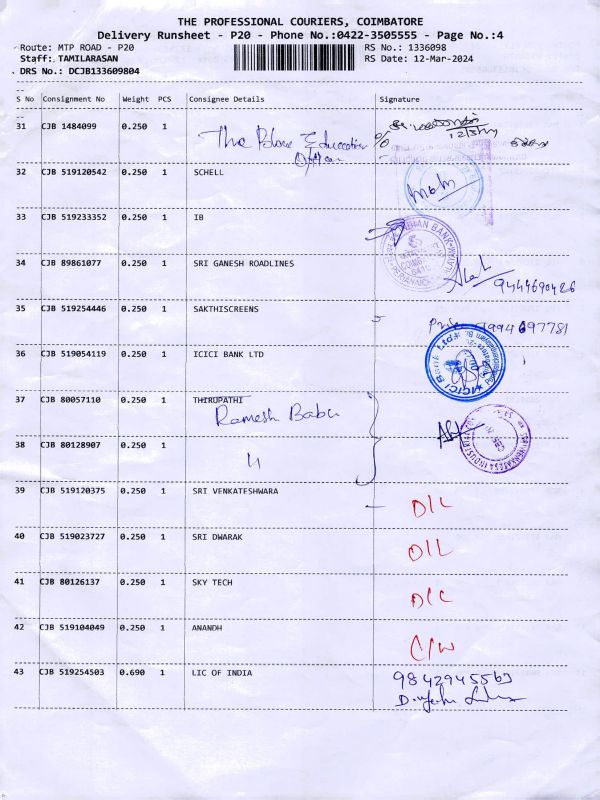 THE PROFESSIONAL COURIERS, COIMBATORE
Delivery Runsheet - P20 - Phone No.:0422-3505555 - Page No.:4
Route: MTP ROAD - P20 RS No.: 1336098
Staff: TAMILARASAN RS Date: 12-Mar-2024
DRS No.: DCJB133609804
S No Consignment No Weight PCS Consignee Details Signature
31 CJB 1484099 0.250 1 The Education Officer 12/3/24
32 CJB 519120542 0.250 1 SCHELL
33 CJB 519233352 0.250 1 IB
34 CJB 89861077 0.250 1 SRI GANESH ROADLINES 9444690426
35 CJB 519254446 0.250 1 SAKTHISCREENS 9994697781
36 CJB 519054119 0.250 1 ICICI BANK LTD ICICI Bank Ltd
37 CJB 80057110 0.250 1 THIRUPATHI
Ramesh Babu
38 CJB 80128907 0.250 1 "
39 CJB 519120375 0.250 1 SRI VENKATESHWARA D/L
40 CJB 519023727 0.250 1 SRI DWARAK D/L
41 CJB 80126137 0.250 1 SKY TECH D/C
42 CJB 519104049 0.250 1 ANANDH C/W
43 CJB 519254503 0.690 1 LIC OF INDIA 9842945563